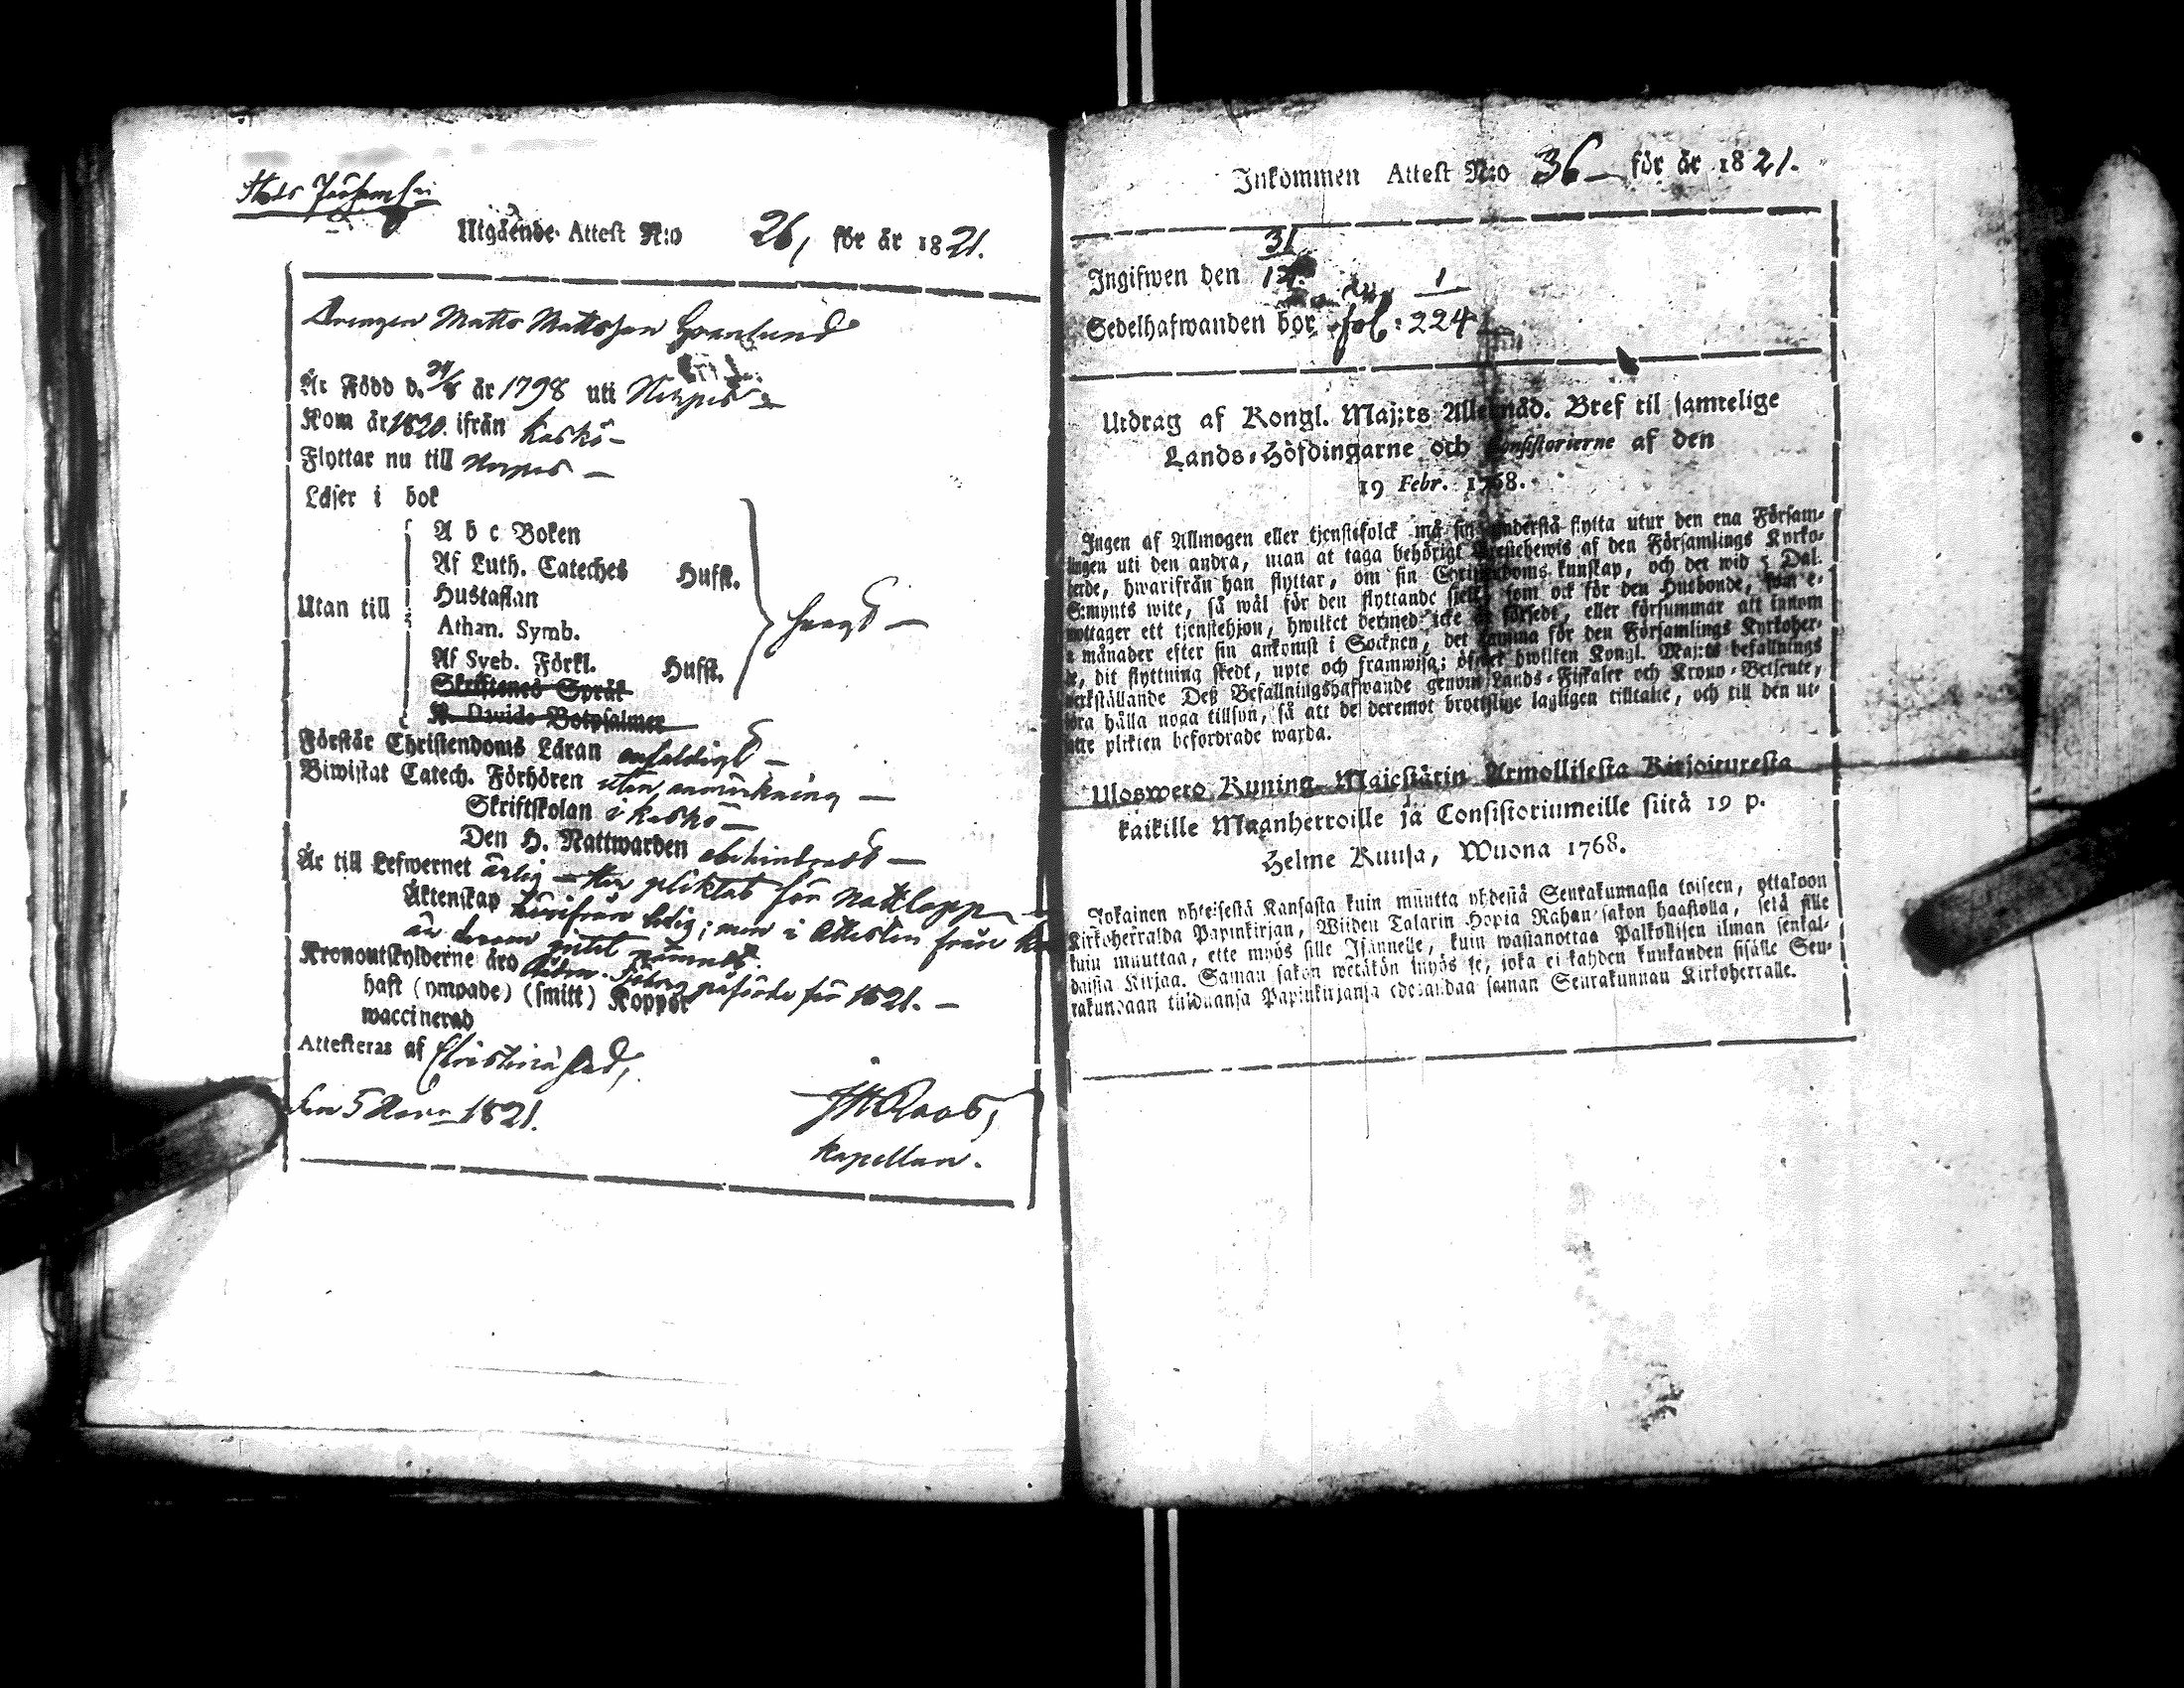 Utgående Attest N:o 26, för år 1821.
Drengen Matts Mattsson Granlund
Är Född d. 21/8 år 1798 uti Nerpes
Kom år 1820. ifrån Kaskö –
Flyttar nu till Nerpes –
Läser i bok
A b c Boken
Af Luth. Cateches Husst.
Hustaflan
Utan till
Athan. Symb.
svagt –
Af Sveb. Förkl. Husst.
Skriftenes Språk
K. Davids Botpsalmer
Förstår Christendoms Läran enfaldigt –
Biwistat Catech. Förhören utan anmärkning –
Skriftskolan i Kaskö –
Den H. Nattwarden obehindradt –
Är till Lefwernet ärlig – har pliktat för Nattlopp –
Äktenskap härifrån ledig; men i Attesten från
är derom intet nämndt.
Kronoutskylderne äro påförde för 1821. –
haft (ympade) (smitt) Koppor
waccinerad
Attesteras af Christinæstad,
den 5 1821.
Kapellan.
Inkommen Attest N:o 36 – för år 1821.
Ingifwen den 31/12.
Sedelhafwanden bor fol: 224
Utdrag af Kongl. Maj:ts Allernåd. Bref til samtelige
Lands-Höfdingarne och Consistorierne af den
19 Febr. 1768.
Ingen af Allmogen eller tjenstefolck må sig understå flytta utur den ena Försam-
lingen uti den andra, utan at taga behörigt Prestebewis af den Församlings Kyrko-
herde, hwarifrån han flyttar, om sin Christendoms kunskap, och det wid 5 Dal.
S:mynts wite, så wäl för den flyttande sielf, som ock för den Husbonde, som e-
mottager ett tjenstehjon, hwilket dermed icke är försedt, eller försummar att innom
månader efter sin ankomst i Socknen, det samma för den Församlings Kyrkoher-
de, dit flyttning skedt, upte och framwisa; öfwer hwilken Kongl. Maj:ts befallnings
werkställande Deß Befallningshafwande genom Lands-Fiskaler och Krono-Betjente,
låra hålla noga tillsyn, så att de deremot brottslige lagligen tilltalte, och till den ut-
satte plickten befordrade warda.
Ulosweto Kuning. Majestätin Armollisesta Kirjoituxesta
kaikille Maanherroille ja Consistoriumeille siitä 19 p.
Helme Kuusa, Wuona 1768.
Jokainen yhteisestä Kansasta kuin muutta yhdestä Seurakunnasta toiseen, ottakoon
Kirkoherralda Papinkirjan, Wiiden Talarin Hopia Rahan sakon haastolla, sekä sille
kuin muuttaa, ette myös sille Isännelle, kuin wastanottaa Palkollisen ilman senkal-
daista Kirjaa. Saman sakon wetäkön myös se, joka ei kahden kuukauden sisälle Seu-
rakundaan tulduansa Papinkirjansa edesandaa saman Seurakunnan Kirkoherralle.